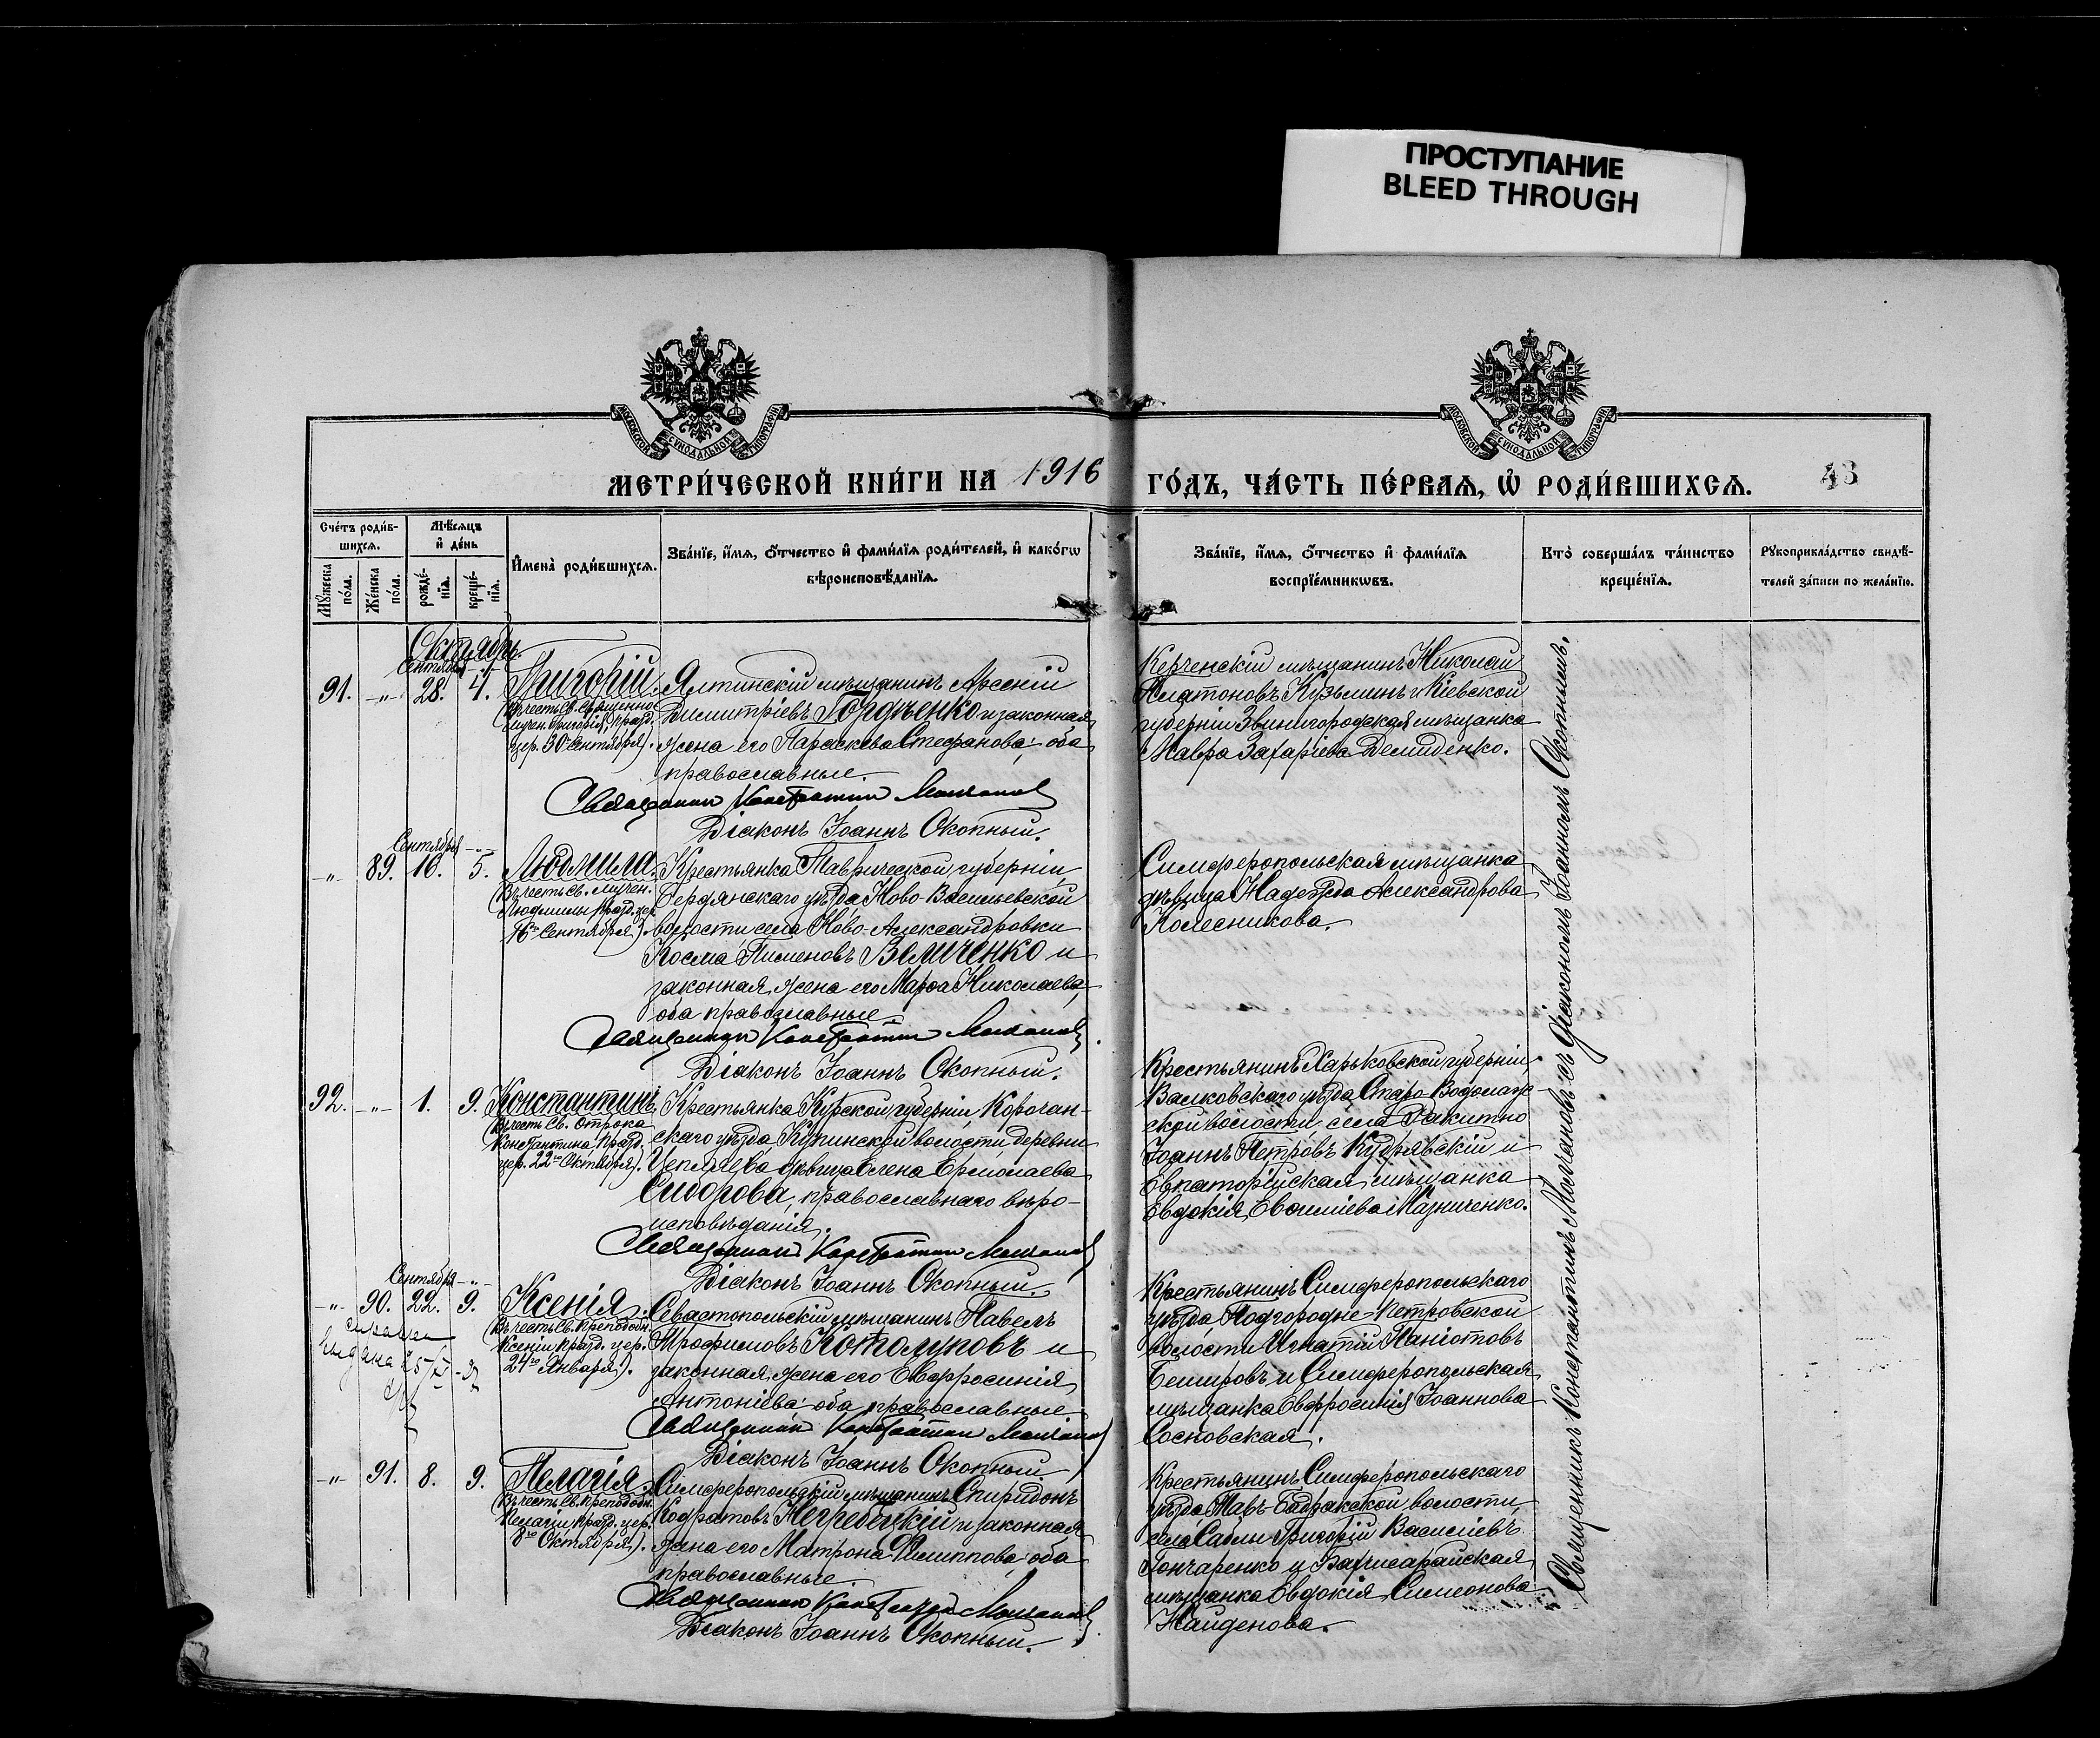 ПРОСТУПАНИЕ
BLEED THROUGH
МОСКОВСКОЙ СѴНОДАЛЬНОЙ ТИПОГРАФІИ
МОСКОВСКОЙ СѴНОДАЛЬНОЙ ТИПОГРАФІИ
МЕТРИ́ЧЕСКОЙ КНИ́ГИ НА 1916 ГО́ДЪ, ЧА́СТЬ ПЕ́РВАѦ, Ѡ҆ РОДИ́ВШИХСѦ.
43
Сче́тъ роди́в-
шихсѧ.
Мꙋ́жеска по́ла.
Же́нска по́ла.
Мѣ́сѧцъ
и҆ де́нь
рожде́-
нїѧ.
креще́-
нїѧ.
И҆мена̀ роди́вшихсѧ.
Зва́нїе, и҆́мѧ, ѻ҆́тчество и҆ фами́лїѧ роди́телей, и҆ како́гѡ
вѣроисповѣ́данїѧ.
Зва́нїе, и҆́мѧ, ѻ҆́тчество и҆ фами́лїѧ
воспрїе́мникѡвъ.
Кто̀ соверша́лъ та́инство
креще́нїѧ.
Рꙋкоприкла́дство свидѣ́-
телей за́писи по жела́нїю.
Октябрь.
Сентября -"-
91. -"- 28. 4.
Григорій.
(Въ честь Св. Священно-
мучен. Григорія, празд.
цер. 30го Сентября).
Ялтинскій мѣщанинъ Арсеній
Димитріевъ Гордѣенко и законная
жена его Параскева Стефанова, оба
православные.
Священник Константин Молчанов
Діаконъ Іоаннъ Окопный.
Керченскій мѣщанинъ Николай
Платоновъ Кузьминъ и Кіевской
губерніи Звенигородская мѣщанка
Мавра Захаріева Демиденко.
Сентября -"-
-"- 89. 10. 5.
Людмила.
(Въ честь Св. мучен.
Людмилы празд. цер.
16го Сентября).
Крестьянка Таврической губерніи
Бердянскаго уѣзда Ново-Васильевской
волости села Ново-Александровки
Косма Пименовъ Величенко и
законная жена его Марѳа Николаева,
оба православные
Священник Константин Молчанов.
Діаконъ Іоаннъ Окопный.
Симферопольская мѣщанка
дѣвица Надежда Александрова
Колесникова.
92. -"- 1. 9.
Константинъ.
(Въ честь Св. отрока
Константина, празд.
цер. 22го Октября).
Крестьянка Курской губерніи Корочан-
скаго уѣзда, Купинской волости, деревни
Цепляева дѣвица Елена Ермолаева
Сидорова, православнаго вѣро-
исповѣданія.
Священник Константин Молчанов
Діаконъ Іоаннъ Окопный.
Крестьянинъ Харьковской губерніи,
Валковскаго уѣзда Старо-Водолаж-
ской волости, села Ракитно
Іоаннъ Петровъ Кудрявскій и
Евпаторійская мѣщанка
Евдокія Евфиміева Мазниченко.
Сентября -"-
-"- 90. 22. 9.
справка
выдана
Ксенія.
(Въ честь Св. Преподобн.
Ксеніи, празд. цер.
24го Января).
Севастопольскій мѣщанинъ Павелъ
Трофимовъ Котолуповъ и
законная жена его Евфросинія
Антоніева, оба православные
Священник Константин Молчанов
Діаконъ Іоаннъ Окопный
Крестьянинъ Симферопольскаго
уѣзда, Подгородне-Петровской
волости Игнатій Паніотовъ
Бешировъ и Симферопольская
мѣщанка Евфросинія Іоаннова
Сосновская.
-"- 91. 8. 9.
Пелагія.
(Въ честь Св. Преподобн.
Пелагіи, празд. цер.
8го Октября).
Симферопольскій мѣщанинъ Спиридонъ
Кодратовъ Негребецкій и законная
жена его Матрона Филиппова, оба
православные
Священник Константин Молчанов
Діаконъ Іоаннъ Окопный.
Крестьянинъ Симферопольскаго
уѣзда, Тавъ-Бадракской волости,
села Саблы Григорій Василіевъ
Гончаренко и Бахчисарайская
мѣщанка Евдокія Симеонова
Найденова.
Священникъ Константинъ Молчановъ съ діакономъ Іоанномъ Окопнымъ.